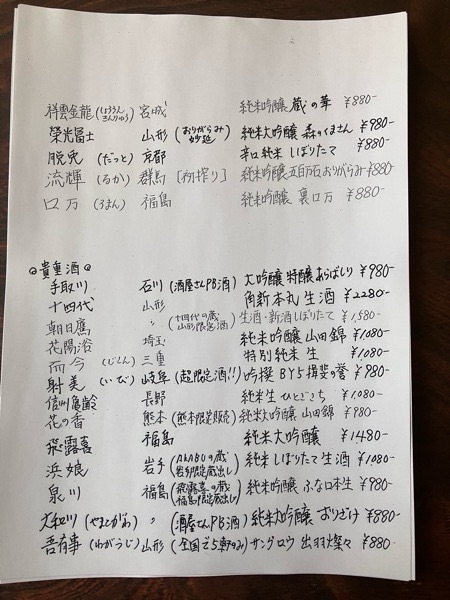 祥雲金龍(しょううんきんりゅう) 宮城 純米吟醸 蔵の華 ¥880-
榮光冨士 山形(おりがらみ 妙延) 純米大吟醸 森のくまさん ¥980-
脱兎(だっと) 京都 辛口純米 しぼりたて ¥880-
流輝(るか) 群馬[初搾り] 純米吟醸 五百万石おりがらみ ¥880-
ロ万(ろまん) 福島 純米吟醸 裏ロ万 ¥880-
◎貴重酒◎
手取川 石川(酒屋さんPB酒) 大吟醸 特醸あらばしり ¥980-
十四代 山形 角新本丸 生酒 ¥2280-
朝日鷹 〃(十四代の蔵 山形限定酒) 生酒・新酒しぼりたて ¥1,580-
花陽浴 埼玉 純米吟醸 山田錦 ¥1,080-
而今(じこん) 三重 特別純米 生 ¥1,080-
射美(いび) 岐阜(超限定酒!!) 吟撰 BY5 揖斐の誉 ¥980-
信州亀齢 長野 純米生 ひとごこち ¥1,080-
花の香 熊本(熊本限定販売) 純米大吟醸 山田錦 ¥980-
飛露喜 福島 純米大吟醸 ¥1480-
浜娘 岩手(AKABUの蔵 岩手限定蔵出し) 純米 しぼりたて生酒 ¥1,080-
泉川 福島(飛露喜の蔵 福島限定蔵出し) 純米吟醸 ふな口本生 ¥980-
大和川(やまとがわ) 〃(酒屋さんPB酒) 純米大吟醸 おりざけ ¥880-
吾有事(わがうじ) 山形(全国で5軒のみ) サングロウ 出羽燦々 ¥880-